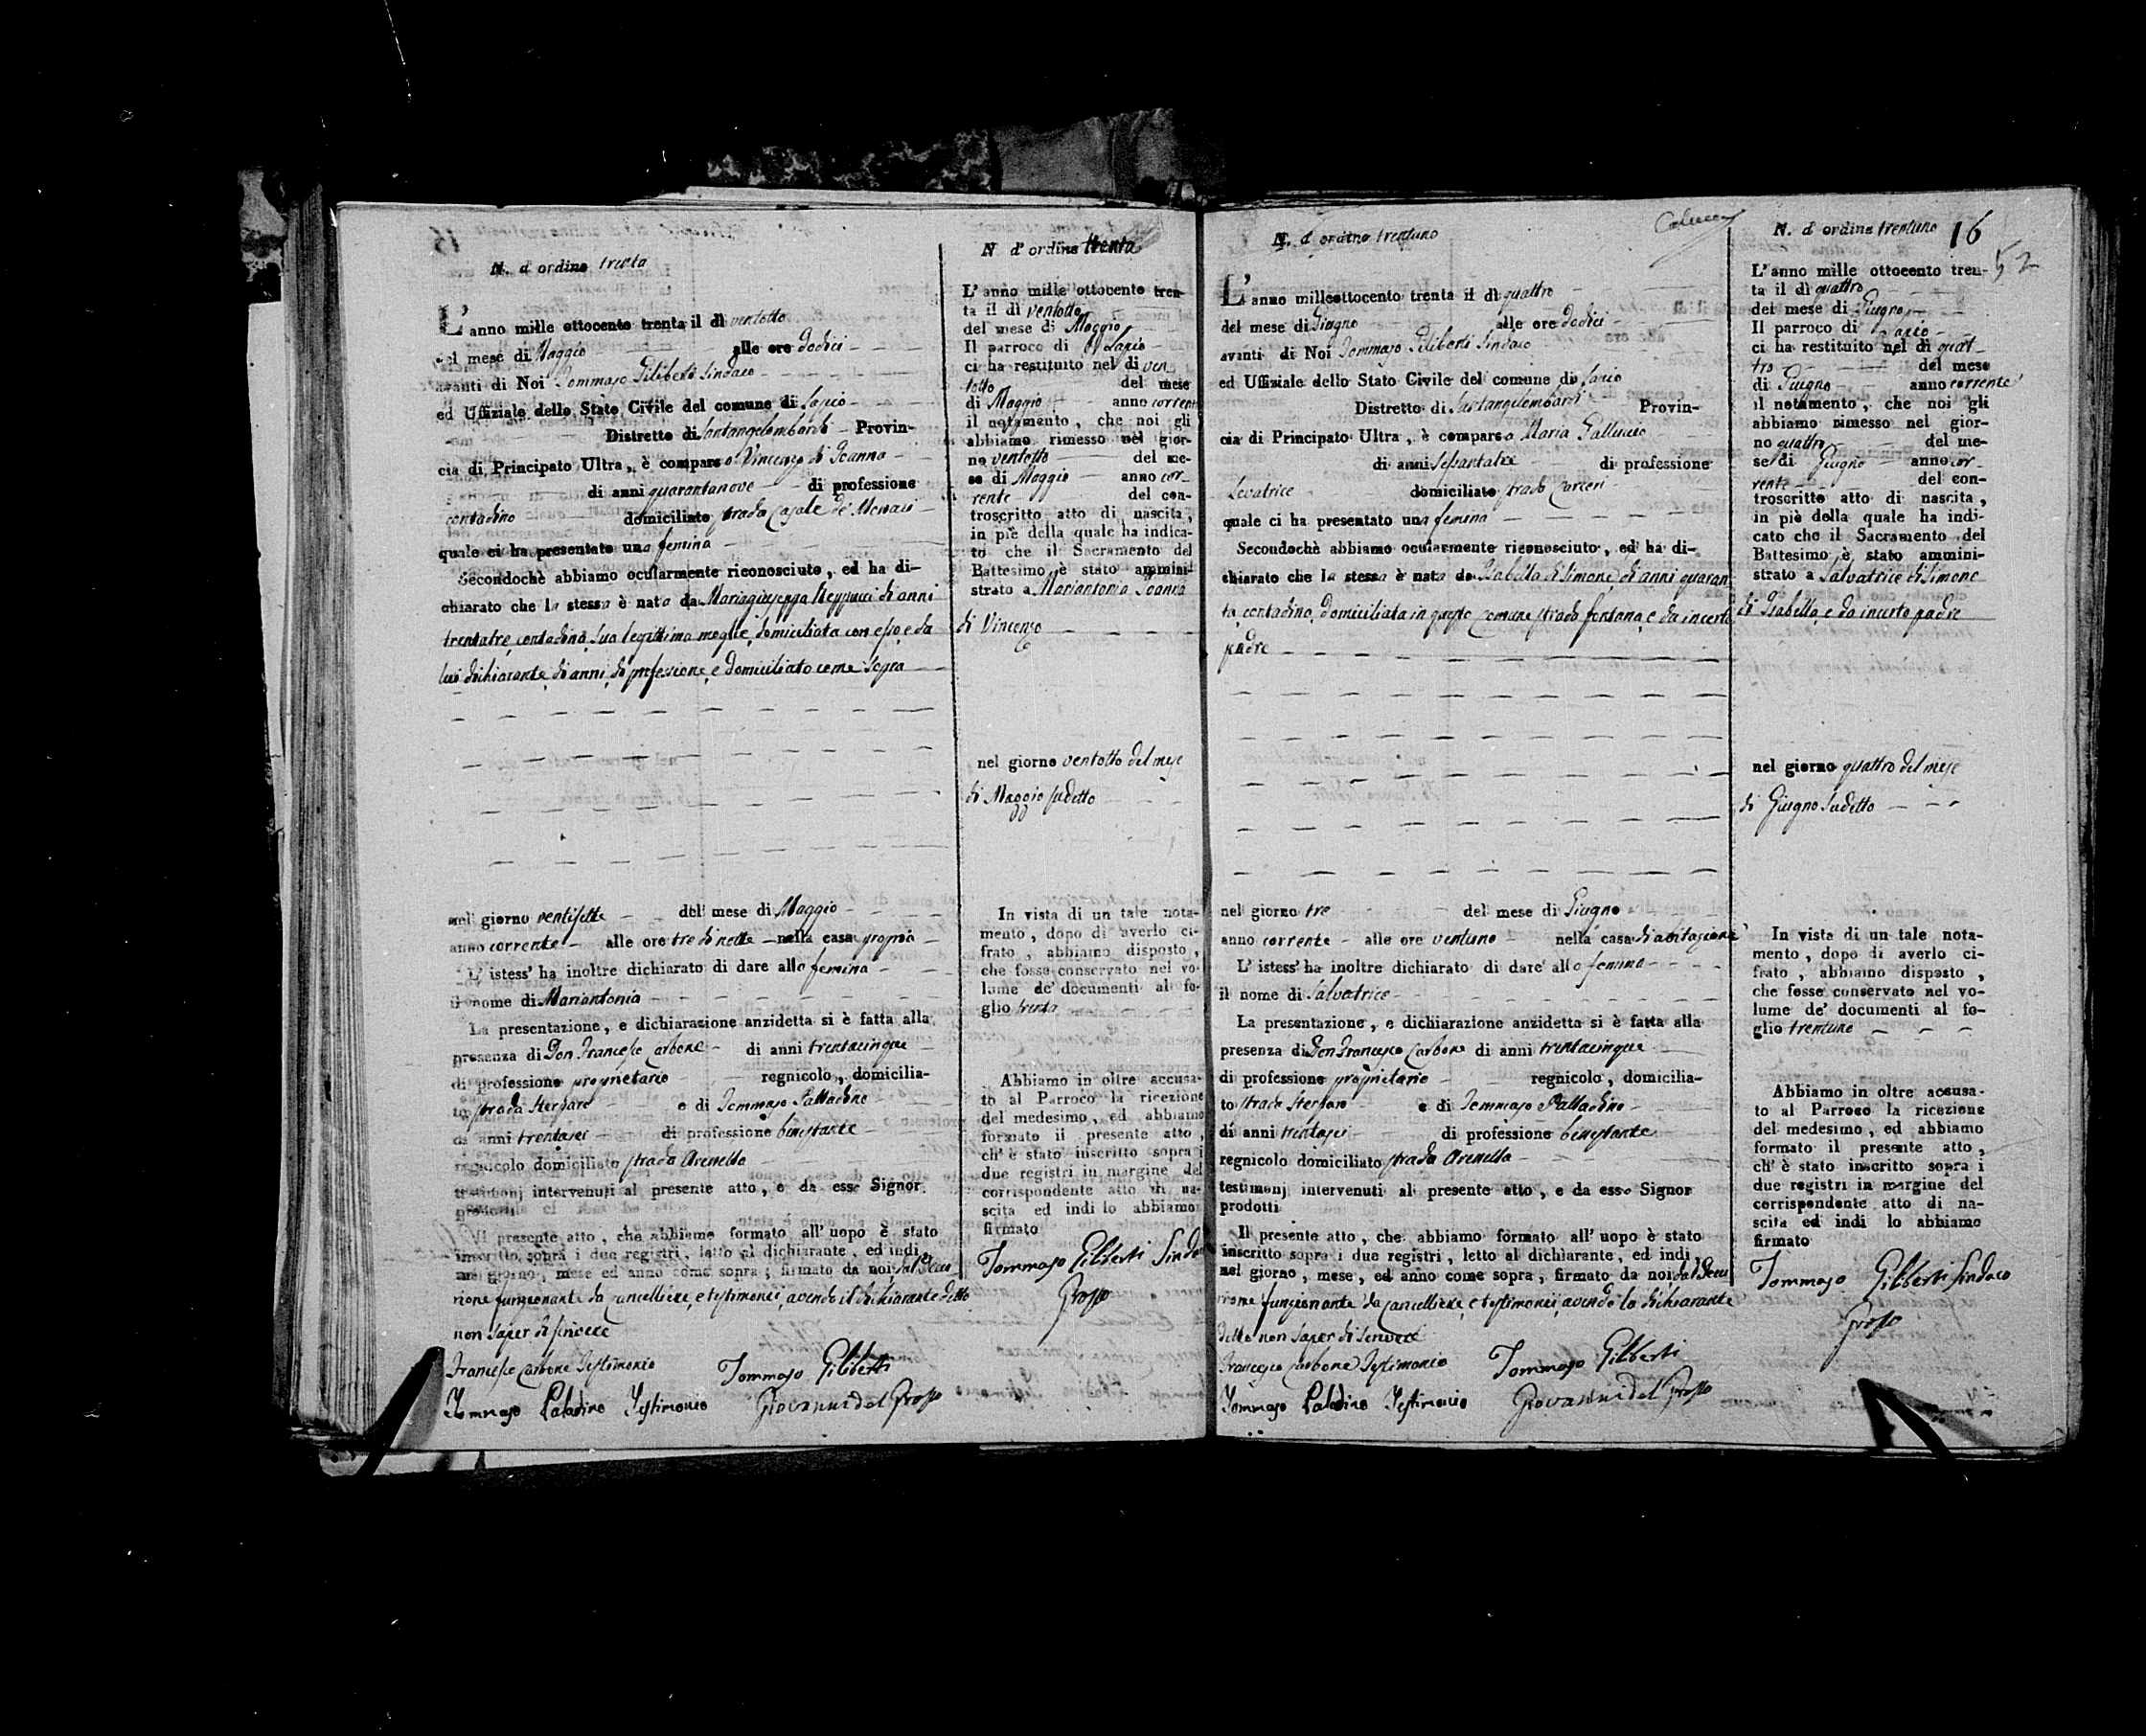 N. d'ordine trenta
L'anno mille ottocento trenta il dì ventotto
del mese di Maggio alle ore dodici
avanti di Noi Tommaso Giliberti Sindaco
ed Uffiziale dello Stato Civile del comune di Lapio
Distretto di Santangelombardi Provin-
cia di Principato Ultra, è comparso Vincenzo di Joanna
di anni quarantanove di professione
contadino domiciliato strada Casale de'
quale ci ha presentato una femina
Secondochè abbiamo ocularmente riconosciuto, ed ha di-
chiarato che la stessa è nata da Mariagiuseppa di anni
trentatre, contadina, sua legittima moglie, domiciliata con esso, e da
lui dichiarante, di anni, di professione, e domiciliato come sopra
nel giorno ventisette del mese di Maggio
anno corrente alle ore tre di notte nella casa propria
L'istess' ha inoltre dichiarato di dare alla femina
il nome di Mariantonia
La presentazione, e dichiarazione anzidetta si è fatta alla
presenza di Don Francesco Carbone di anni trentacinque
di professione proprietario regnicolo, domicilia-
to strada e di Tommaso Palladino
di anni trentasei di professione benestante
regnicolo domiciliato strada Arenella
testimonj intervenuti al presente atto, e da esso Signor
prodotti
Il presente atto, che abbiamo formato all'uopo è stato
inscritto sopra i due registri, letto al dichiarante, ed indi
nel giorno, mese ed anno come sopra, firmato da noi, dal Decu
rione funzionante da Cancelliere, e testimonii, avendo il dichiarante detto
non saper di scrivere
Francesco Carbone Testimonio Tommaso Giliberti
Tommaso Paladino Testimonio Giovanni del Grosso
N d'ordine trenta
L'anno mille ottocento tren-
ta il dì ventotto
del mese di Maggio
Il parroco di Lapio
ci ha restituito nel dì ven
totto del mese
di Maggio anno corrente
il notamento, che noi gli
abbiamo rimesso nel gior-
no ventotto del me-
se di Maggio anno cor_
rente del con-
troscritto atto di nascita,
in piè della quale ha indica-
to che il Sacramento del
Battesimo è stato ammini-
strato a Mariantonia Joanna
di Vincenzo
nel giorno ventotto del mese
di Maggio sudetto
In vista di un tale nota-
mento, dopo di averlo ci-
frato, abbiamo disposto,
che fosse conservato nel vo-
lume de' documenti al fo-
glio trenta
Abbiamo in oltre accusa-
to al Parroco la ricezione
del medesimo, ed abbiamo
formato il presente atto,
ch'è stato inscritto sopra i
due registri in margine del
corrispondente atto di na-
scita ed indi lo abbiamo
firmato
Tommaso Giliberti Sindaco
Grosso
N. d'ordine trentuno
L'anno milleottocento trenta il dì quattro
del mese di Giugno alle ore dodici
avanti di Noi Tommaso Giliberti Sindaco
ed Uffiziale dello Stato Civile del comune di Lapio
Distretto di Santangelombardi Provin-
cia di Principato Ultra, è comparsa Maria Galluccio
di anni sessantatre di professione
Levatrice domiciliata strada Carceri
quale ci ha presentato una femina
Secondochè abbiamo ocularmente riconosciuto, ed ha di-
chiarato che la stessa è nata da Isabella di Simone, di anni quaran
ta, contadina, domiciliata in questo Comune strada fontana, e da incerto
padre
nel giorno tre del mese di Giugno
anno corrente alle ore ventuno nella casa di abitazione
L'istess' ha inoltre dichiarato di dare alla femina
il nome di Salvatrice
La presentazione, e dichiarazione anzidetta si è fatta alla
presenza di Don Francesco Carbone di anni trentacinque
di professione proprietario regnicolo, domicilia-
to strada e di Tommaso Palladino
di anni trentasei di professione benestante
regnicolo domiciliato strada Arenella
testimonj intervenuti al presente atto, e da esso Signor
prodotti
Il presente atto, che abbiamo formato all'uopo è stato
inscritto sopra i due registri, letto al dichiarante, ed indi
nel giorno, mese, ed anno come sopra, firmato da noi, dal Decu
rione funzionante da Cancelliere, e testimonii, avendo la dichiarante
detto non saper di scrivere
Francesco Carbone Testimonio Tommaso Giliberti
Tommaso Paladino Testimonio Giovanni del Grosso
N. d'ordine trentuno 16
52
L'anno mille ottocento tren-
ta il dì quattro
del mese di Giugno
Il parroco di Lapio
ci ha restituito nel dì quat_
tro del mese
di Giugno anno corrente
il notamento, che noi gli
abbiamo rimesso nel gior-
no quattro del me-
se di Giugno anno cor_
rente del con-
troscritto atto di nascita,
in piè della quale ha indi-
cato che il Sacramento del
Battesimo è stato ammini-
strato a Salvatrice di Simone
di Isabella, e da incerto padre
nel giorno quattro del mese
di Giugno sudetto
In vista di un tale nota-
mento, dopo di averlo ci-
frato, abbiamo disposto,
che fosse conservato nel vo-
lume de' documenti al fo-
glio trentuno
Abbiamo in oltre accusa-
to al Parroco la ricezione
del medesimo, ed abbiamo
formato il presente atto,
ch'è stato inscritto sopra i
due registri in margine del
corrispondente atto di na-
scita ed indi lo abbiamo
firmato
Tommaso Giliberti Sindaco
Grosso